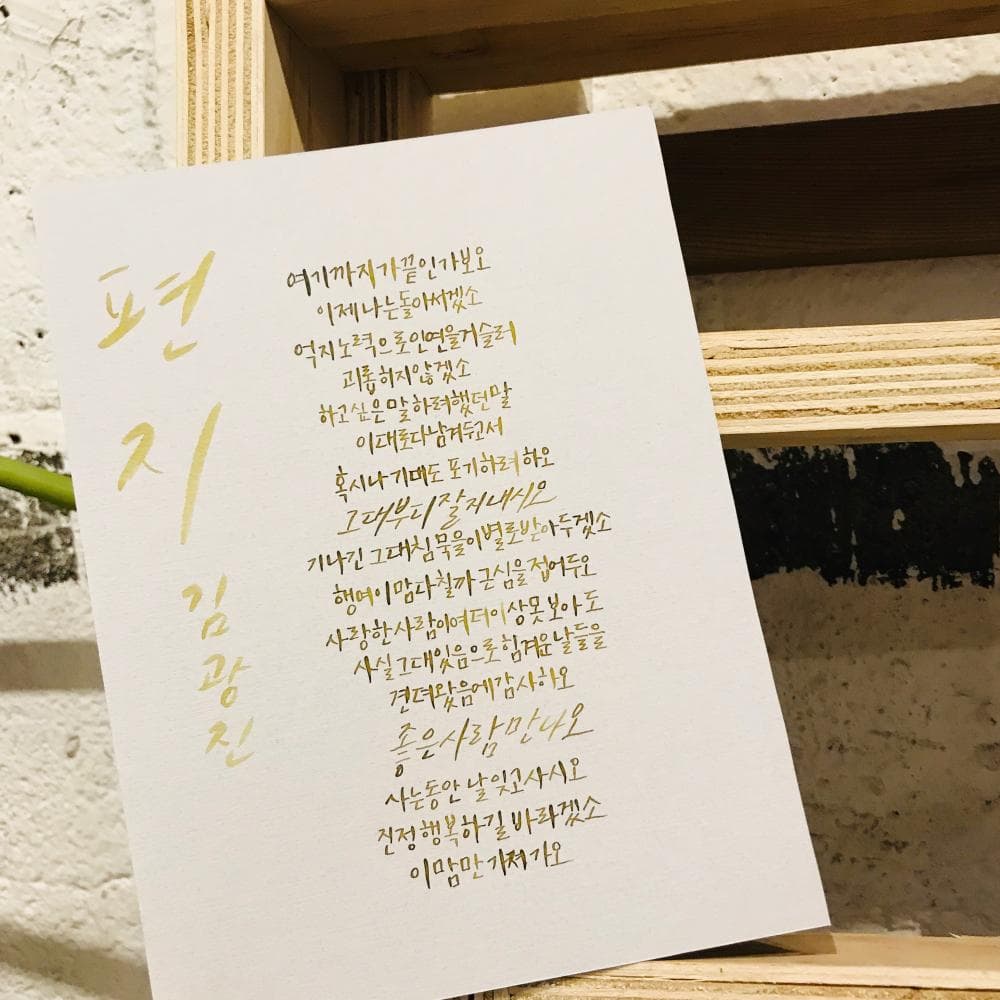 편지
김광진
여기까지가 끝인가보오
이제 나는 돌아서겠소
억지 노력으로 인연을 거슬러
괴롭히지 않겠소
하고 싶은 말 하려 했던 말
이대로 다 남겨두고서
혹시나 기대도 포기하려 하오
그대 부디 잘 지내시오
기나긴 그대 침묵을 이별로 받아두겠소
행여 이 맘 다칠까 근심을 접어두오
사랑한 사람이여 더 이상 못 보아도
사실 그대 있음으로 힘겨운 날들을
견뎌왔음에 감사하오
좋은 사람 만나오
사는 동안 날 잊고 사시오
진정 행복하길 바라겠소
이 맘만 가져가오